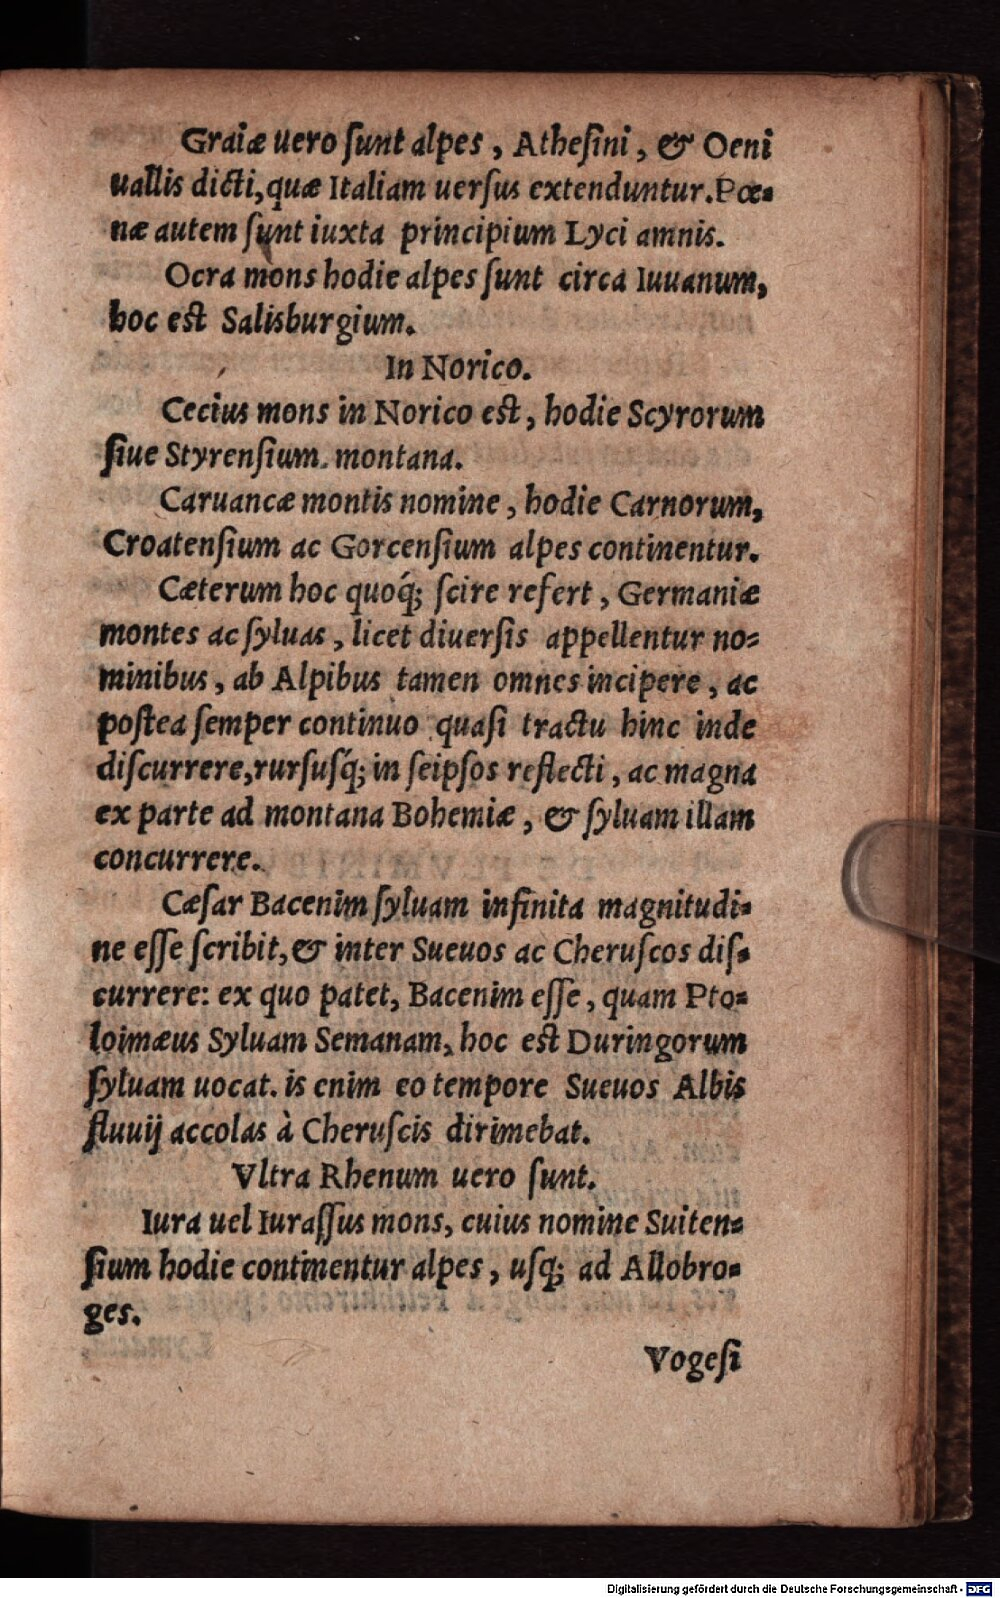 Graiæ uero ſunt alpes, Atheſini, & Oeni
uallis dicti, quæ Italiam uerſus extenduntur. Pœ-
næ autem ſunt iuxta principium Lyci amnis.
Ocra mons hodie alpes ſunt circa Iuuanum,
hoc eſt Salisburgium.
In Norico.
Cecius mons in Norico eſt, hodie Scyrorum
ſiue Styrenſium. montana.
Caruancæ montis nomine, hodie Carnorum,
Croatenſium ac Gorcenſium alpes continentur.
Cæterum hoc quoq́; ſcire refert, Germaniæ
montes ac ſyluas, licet diuerſis appellentur no-
minibus, ab Alpibus tamen omnes incipere, ac
poſtea ſemper continuo quaſi tractu hinc inde
diſcurrere, rurſuſq́; in ſeipſos reflecti, ac magna
ex parte ad montana Bohemiæ, & ſyluam illam
concurrere.
Cæſar Bacenim ſyluam infinita magnitudi-
ne eſſe ſcribit, & inter Sueuos ac Cheruſcos diſ-
currere: ex quo patet, Bacenim eſſe, quam Pto-
loimæus Syluam Semanam, hoc eſt Duringorum
ſyluam uocat. is enim eo tempore Sueuos Albis
fluuij accolas à Cheruſcis dirimebat.
Vltra Rhenum uero ſunt.
Iura uel Iuraſſus mons, cuius nomine Suiten-
ſium hodie continentur alpes, uſq; ad Allobro-
ges.
Vogeſi
Digitalisierung gefördert durch die Deutsche Forschungsgemeinschaft - DFG